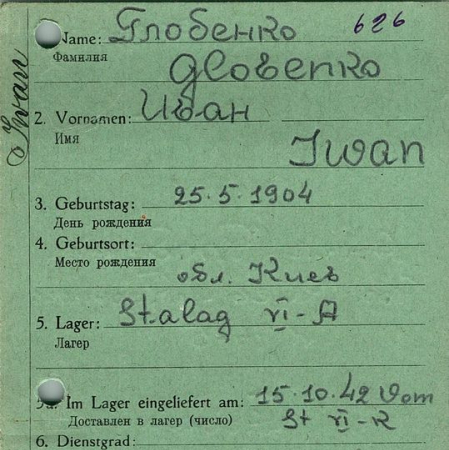 Name: Глобенко 626
Фамилия
Globenko
2. Vornamen: Иван
Имя
Iwan
Iwan
3. Geburtstag: 25.5.1904
День рождения
4. Geburtsort:
Место рождения
обл. Киев
5. Lager: Stalag VI-A
Лагер
5a. Im Lager eingeliefert am: 15.10.42 vom
Доставлен в лагер (число) St VI-K
6. Dienstgrad: